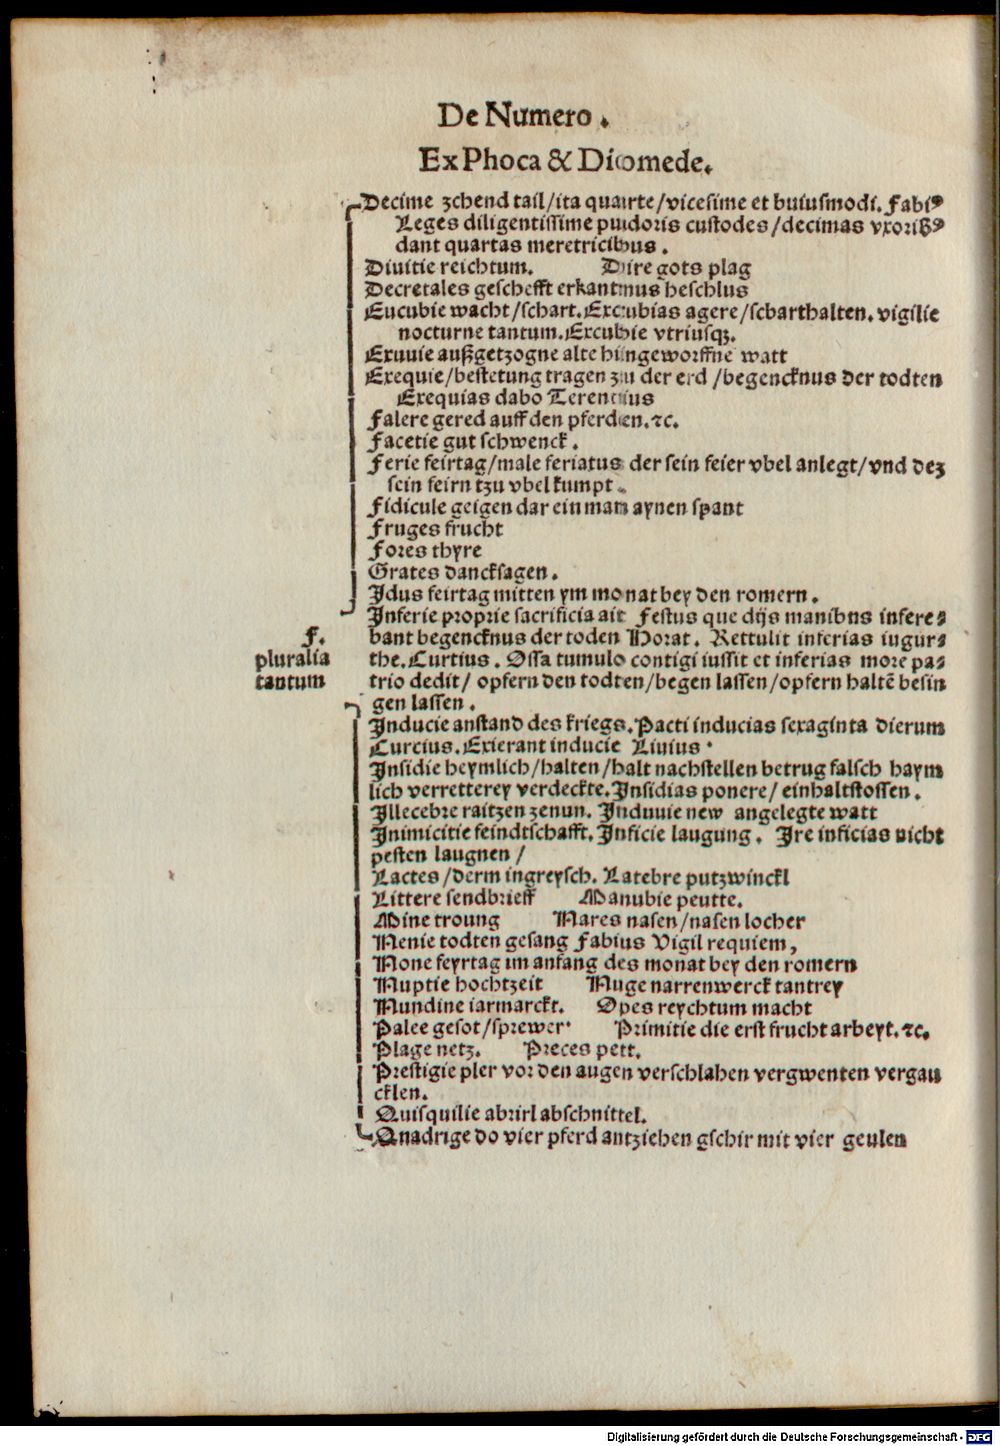 De Numero.
Ex Phoca & Diomede.
Decime zchend tail/ita quarte/vicesime et huiusmodi. Fabiꝰ
Leges diligentissime pudoris custodes/decimas vxoribꝰ
dant quartas meretricibus.
Diuitie reichtum. Dire gots plag
Decretales geschefft erkantnus beschlus
Excubie wacht/schart. Excubias agere/scharthalten. vigilie
nocturne tantum. Excubie vtriusqꝫ.
Exuuie außgetzogne alte hingeworffne watt
Exequie/bestetung tragen zu der erd/begencknus der todten
Exequias dabo Terencius
Falere gered auff den pferden. ⁊c.
Facetie gut schwenck.
Ferie feirtag/male feriatus der sein feier vbel anlegt/vnd dez
sein feirn tzu vbel kumpt.
Fidicule geigen dar ein man aynen spant
Fruges frucht
Fores thyre
Grates dancksagen.
Idus feirtag mitten ym monat bey den romern.
Inferie proprie sacrificia ait Festus que dijs manibns infere⸗
f.
bant begencknus der toden Horat. Rettulit inferias iugur⸗
pluralia
the. Curtius. Ossa tumulo contigi iussit et inferias more pa⸗
tantum
trio dedit/ opfern den todten/begen lassen/opfern haltē besin
gen lassen.
Inducie anstand des kriegs. Pacti inducias sexaginta dierum
Curcius. Exierant inducie Liuius.
Insidie heymlich/halten/halt nachstellen betrug falsch haym
lich verretterey verdeckte. Insidias ponere/ einhaltstossen.
Illecebre raitzen zenun. Induuie new angelegte watt
Inimicitie feindtschafft. Inficie laugung. Ire inficias nicht
pesten laugnen /
Lactes/derm ingreysch. Latebre putzwinckl
Littere sendbrieff Manubie peutte.
Mine troung Nares nasen/nasen locher
Nenie todten gesang Fabius Vigil requiem,
None feyrtag im anfang des monat bey den romern
Nuptie hochtzeit Nuge narrenwerck tantrey
Nundine iarmarckt. Opes reychtum macht
Palee gesot/sprewer. Primitie die erst frucht arbeyt. ⁊c.
Plage netz. Preces pett.
Prestigie pler vor den augen verschlahen vergwenten vergau
cklen.
Quisquilie abrirl abschnittel.
Qnadrige do vier pferd antziehen gschir mit vier geulen
Digitalisierung gefördert durch die Deutsche Forschungsgemeinschaft - DFG